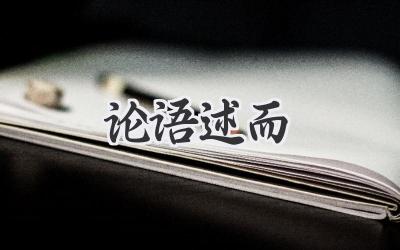 论语述而